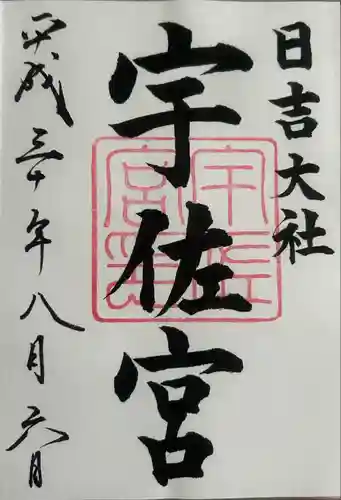 日吉大社
宇佐宮
平成三十年八月六日
宇佐
宮印